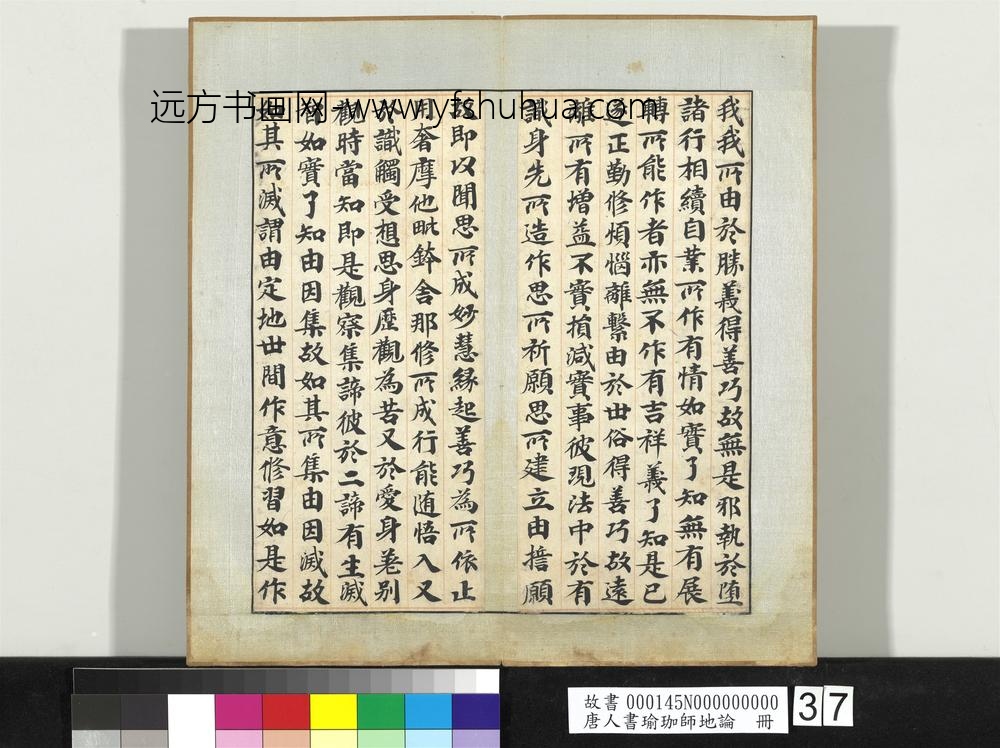 我我所由於勝義得善巧故無是邪執於墮
諸行相續自業所作有情如實了知無有展
轉所能作者亦無不作有吉祥義了知是已
正勤修煩惱離繫由於世俗得善巧故遠
離所有增益不實損減實事彼現法中於有
識身先所造作思所祈願思所建立由擔願
故即以聞思所成妙慧緣起善巧為所依止
用奢摩他毗鉢舍那修所成行能随悟入又
於識觸受想思身歷觀為苦又於愛身差别
觀時當知即是觀察集諦彼於二諦有生滅
智如實了知由因集故如其所集由因滅故
如其所滅謂由定地世間作意修習如是作
远方书画网-www.yfshuhua.com
故書 000145N000000000
唐人書瑜珈師地論 冊
37